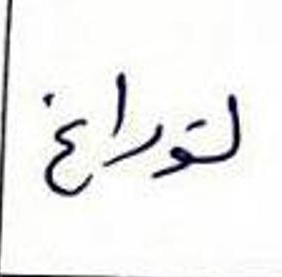 لتوراغ